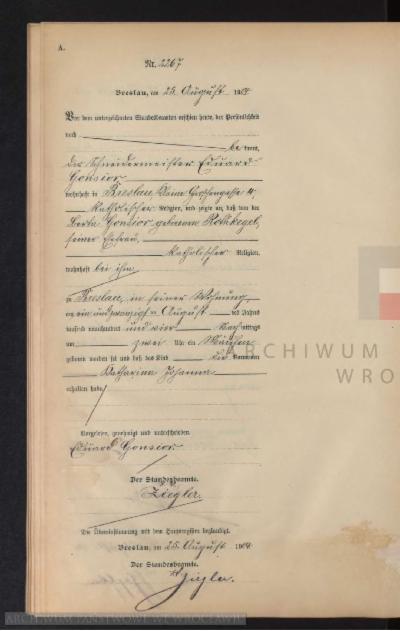 A.
Nr. 2267
Breslau, am 25. August 1904
Vor dem unterzeichneten Standesbeamten erschien heute, der Persönlichkeit
nach be kannt,
der Schneidermeister Eduard
Gonsior
wohnhaft in Breslau, Kleine Groschengasse 4,
katholischer Religion, und zeigte an, daß von der
Berta Gonsior geborenen Rothkegel,
seiner Ehefrau,
katholischer Religion,
wohnhaft bei ihm,
zu Breslau, in seiner Wohnung,
am einundzwanzigsten August des Jahres
tausend neunhundert und vier Nachmittags
um zwei Uhr ein Mädchen
geboren worden sei und daß das Kind die Vornamen
Katharina Johanna
erhalten habe
Vorgelesen, genehmigt und unterschrieben
Eduard Gonsior.
Der Standesbeamte.
Ziegler.
Die Übereinstimmung mit dem Hauptregister beglaubigt.
Breslau, am 25. August 1904
Der Standesbeamte.
Ziegler.
ARCHIWUM
WRO
ARCHIWUM PAŃSTWOWE WE WROCŁAWIU